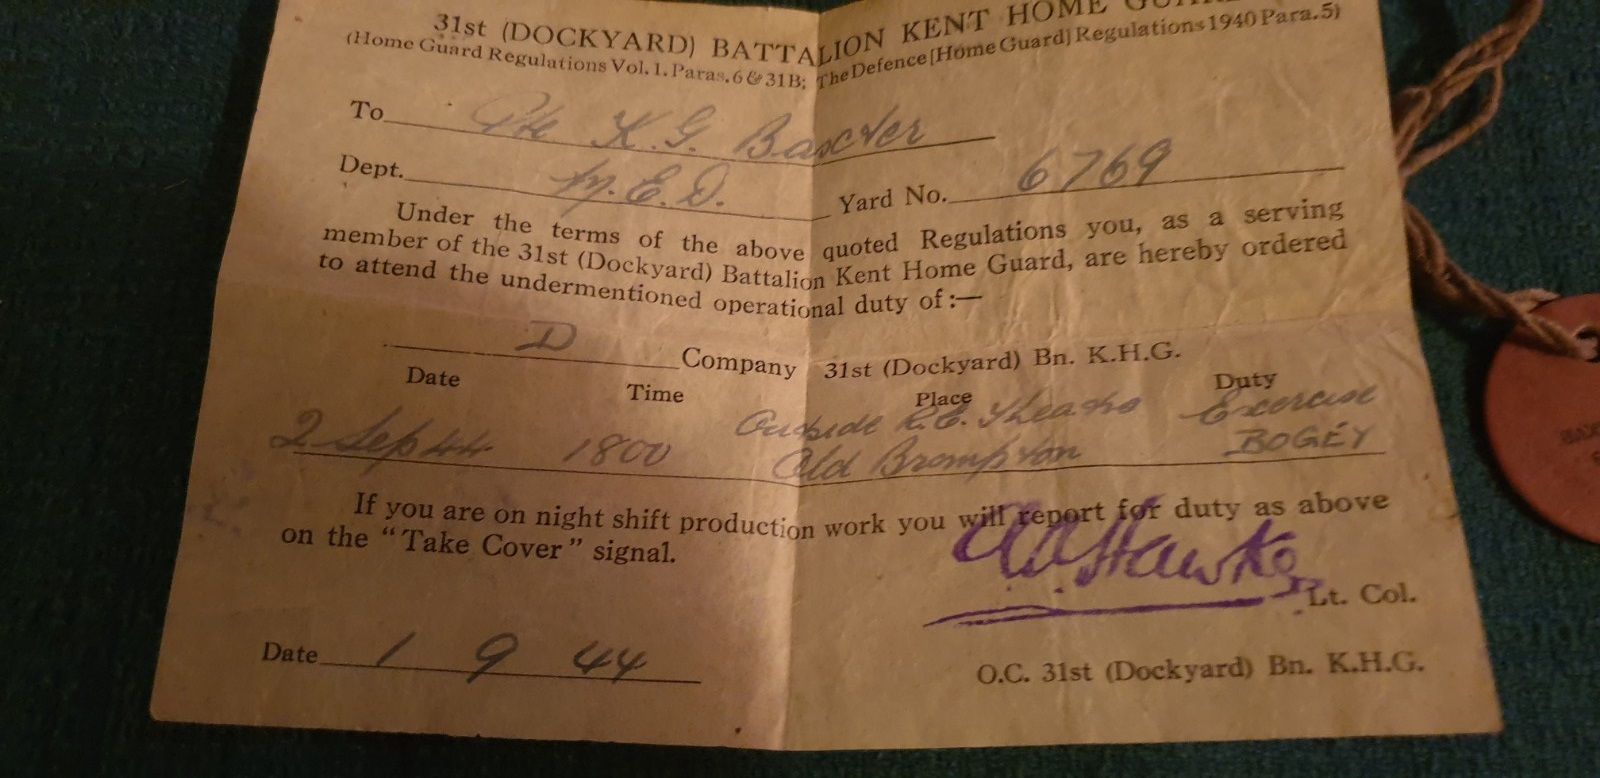 31st (DOCKYARD) BATTALION KENT HOME
(Home Guard Regulations Vol. 1. Paras. 6 & 31B; The Defence [Home Guard] Regulations 1940 Para. 5)
To Pte K. G. Baxter
Dept. M. E. D. Yard No. 6769
Under the terms of the above quoted Regulations you, as a serving
member of the 31st (Dockyard) Battalion Kent Home Guard, are hereby ordered
to attend the undermentioned operational duty of :—
D Company 31st (Dockyard) Bn. K.H.G.
Date Time Place Duty
2 Sep 44 1800 Outside R.E. Theatre Exercise
Old Brompton BOGEY
If you are on night shift production work you will report for duty as above
on the "Take Cover" signal.
Hawke
Lt. Col.
Date 1 9 44
O.C. 31st (Dockyard) Bn. K.H.G.